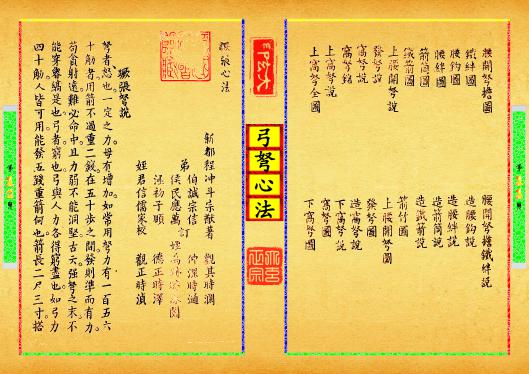 腰開弩擔圖　腰開弩擔鐵絆說
鐵絆圖　造腰鈎說
腰鈎圖　造腰絆說
腰絆圖　造箭筒說
箭筒圖　造鐵箭說
鐵箭圖　箭竹圖
上腰開弩說　上腰開弩圖
發弩說　發弩圖
窩弩銘　造窩弩說
上窩弩說　下窩弩說
上窩弩全圖　下窩弩圖
弓弩心法
蹶張心法
新都程冲斗宗猷著
弟伯誠宗信訂
侯民應萬
汪初子頤
姪君信儒家校
觀其時瀾
仲深時通
德正時澤
觀正時湞
蹶張弩說
弩者怒也一定之力毋有增加如常用弩力有一百五六
十觔者用箭不過重二錢在五十步之間發則準而有力
苟貪射遠難必命中且力弱不能洞堅古云强弩之末不
能穿魯縞是也弓者窮也弓與人力各得窮盡也如弓力
四十觔人皆可用能發五錢重箭何也箭長二尺三寸搭